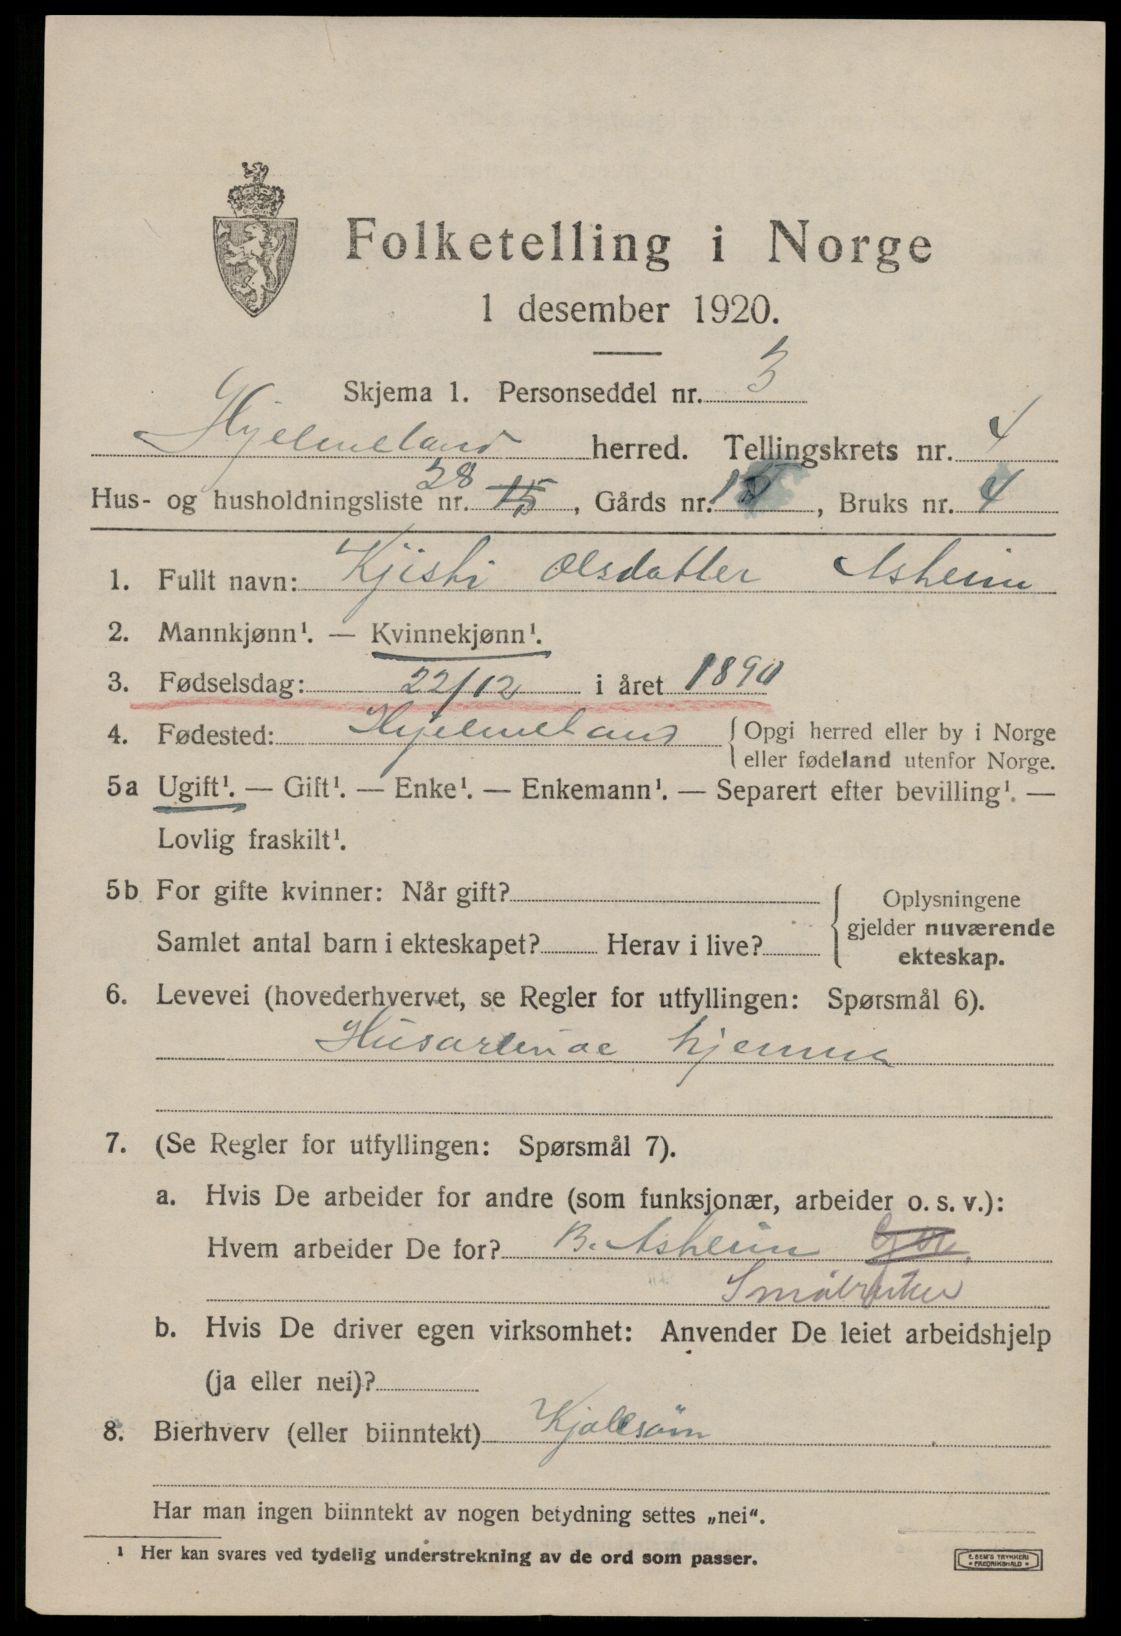 Folketelling i Norge
1 desember 1920.
Skjema 1. Personseddel nr. 3
Hjelmeland herred. Tellingskrets nr. 4
Hus- og husholdningsliste nr. 38 15, Gårds nr. , Bruks nr. 4
1. Fullt navn: Kjisti Olsdatter Asheim
2. Mannkjønn¹. — Kvinnekjønn¹.
3. Fødselsdag: 22/12 i året 1890
4. Fødested: Hjelmeland {Opgi herred eller by i Norge
eller fødeland utenfor Norge.
5a Ugift¹. — Gift¹. — Enke¹. — Enkemann¹. — Separert efter bevilling¹. —
Lovlig fraskilt¹.
5b For gifte kvinner: Når gift?
Samlet antal barn i ekteskapet? Herav i live?
Oplysningene
gjelder nuværende
ekteskap.
6. Levevei (hovederhvervet, se Regler for utfyllingen: Spørsmål 6).
Husarbeide hjemme
7. (Se Regler for utfyllingen: Spørsmål 7).
a. Hvis De arbeider for andre (som funksjonær, arbeider o. s. v.):
Hvem arbeider De for? B. Asheim
Småbruker
b. Hvis De driver egen virksomhet: Anvender De leiet arbeidshjelp
(ja eller nei)?
8. Bierhverv (eller biinntekt) Kjolesøm
Har man ingen biinntekt av nogen betydning settes „nei“.
¹ Her kan svares ved tydelig understrekning av de ord som passer.
E. SEM'S TRYKKERI
FREDRIKSHALD